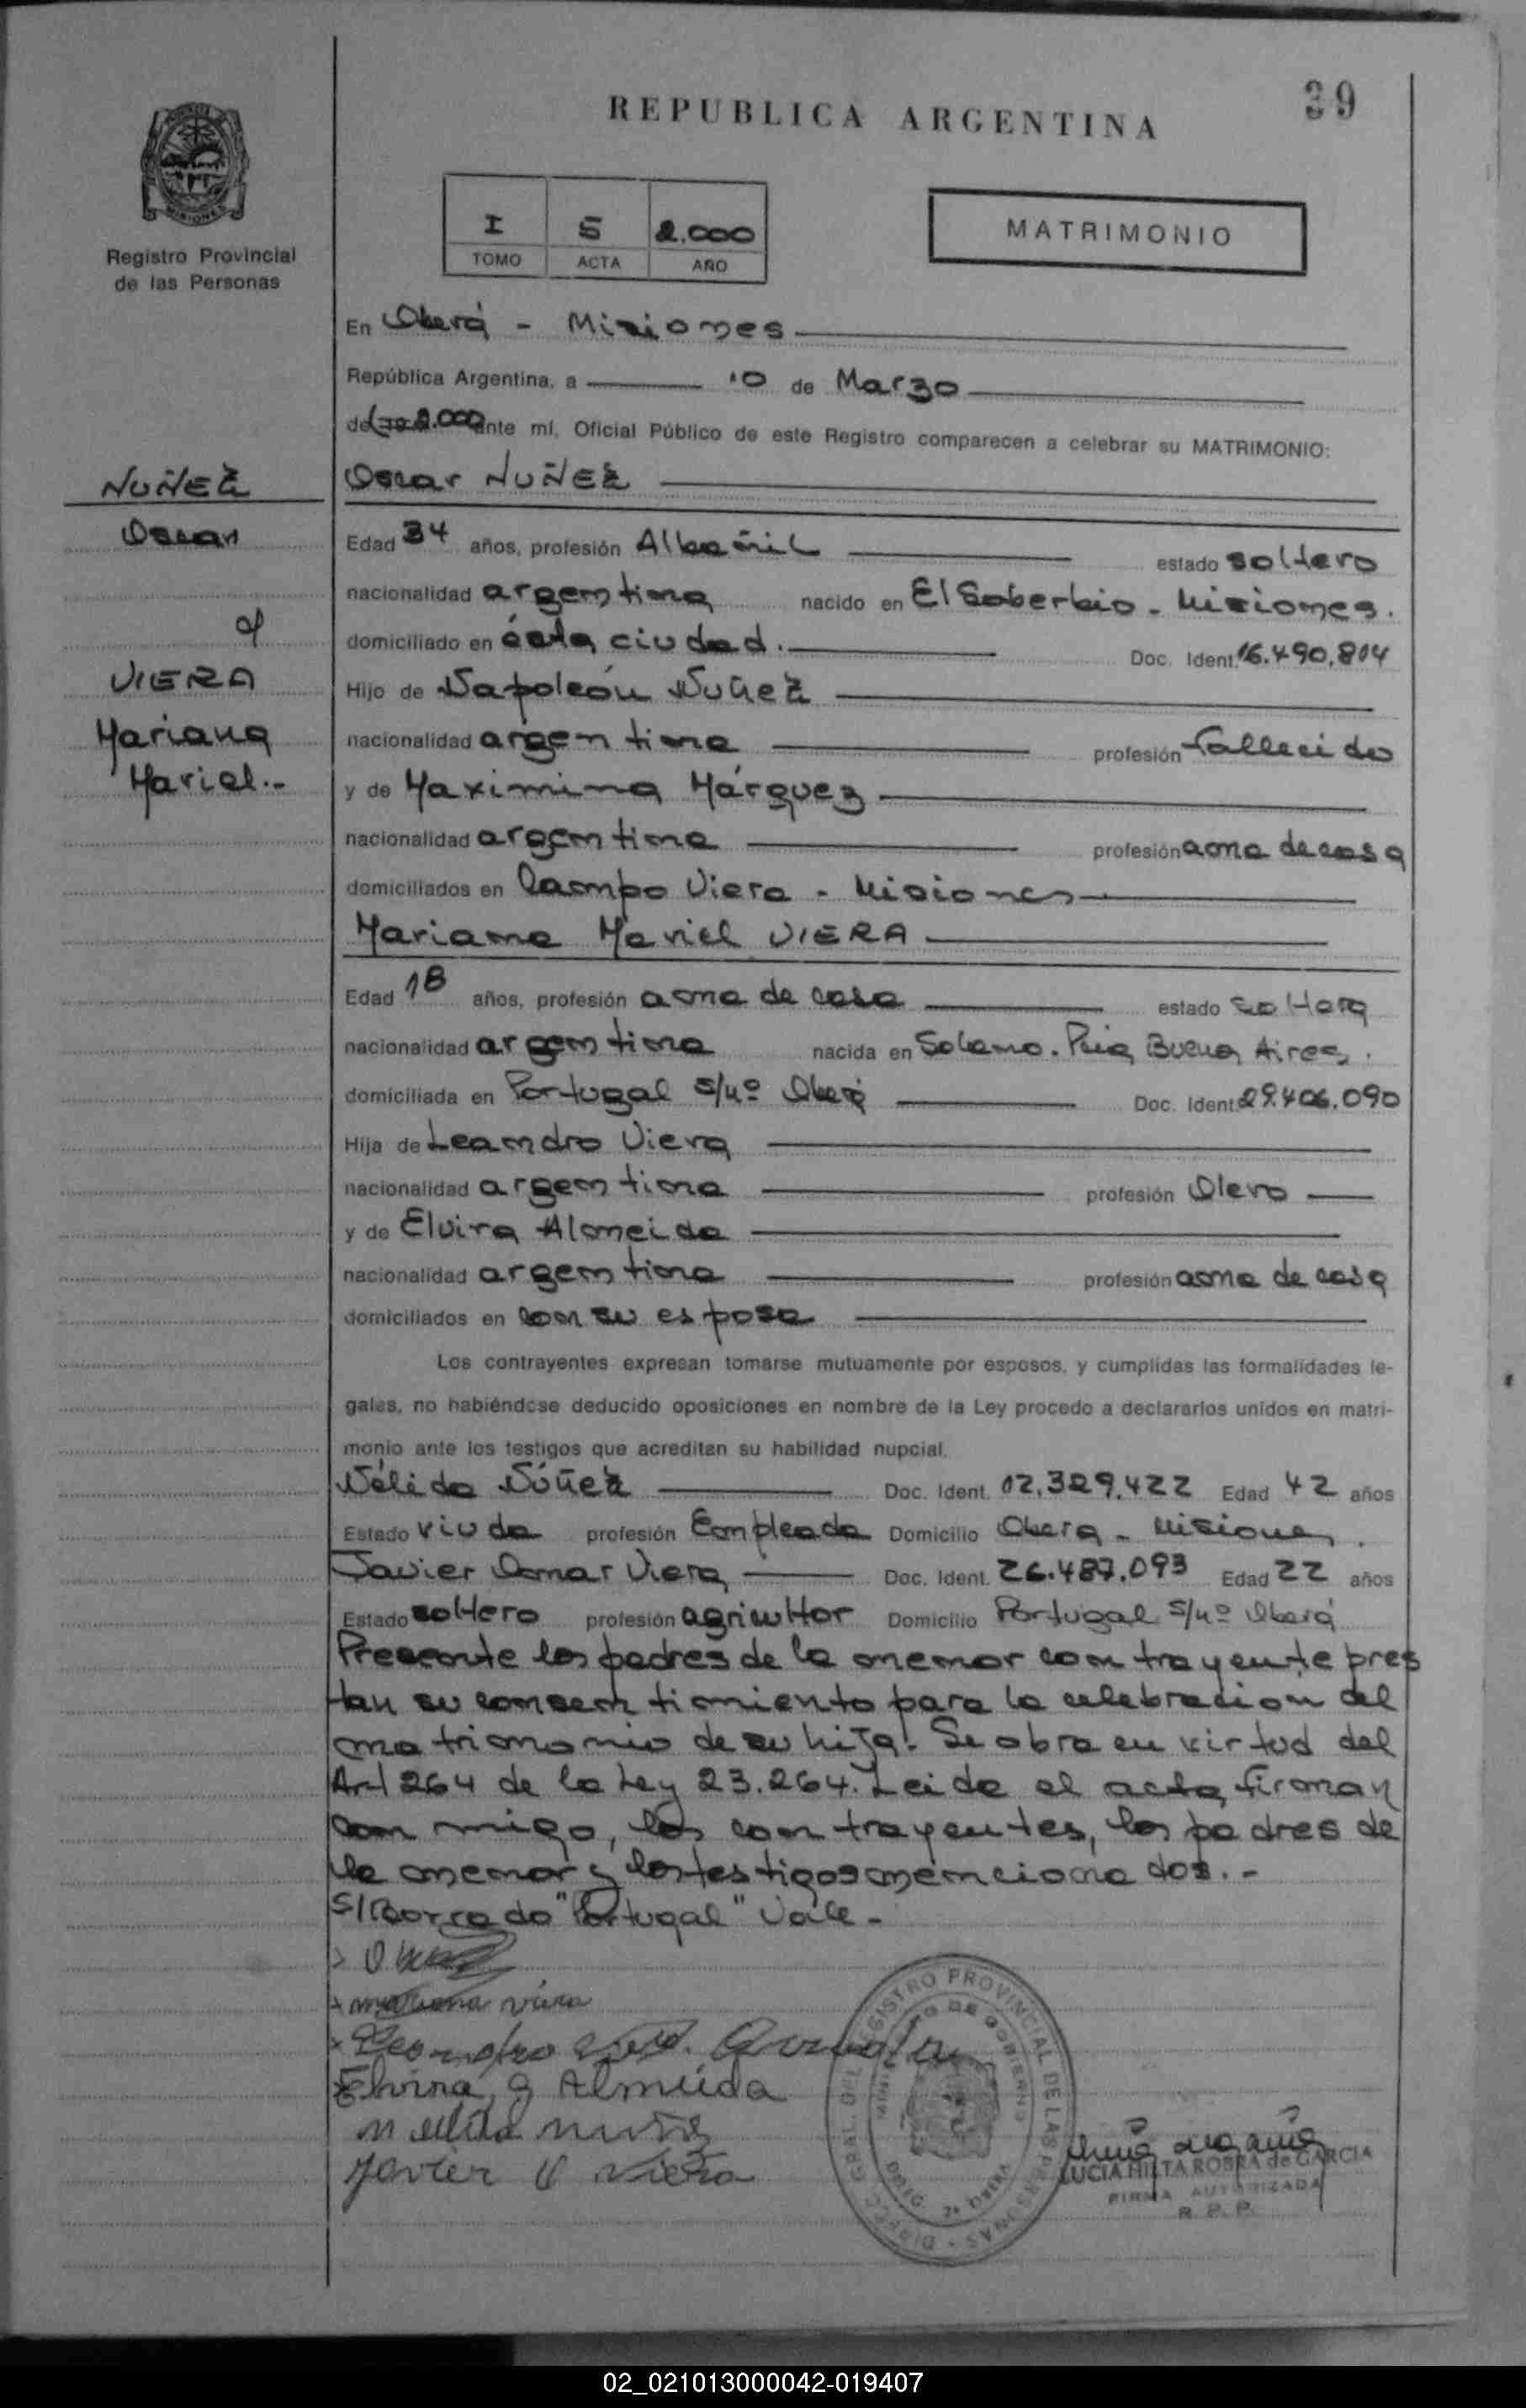 39
REPUBLICA ARGENTINA
MISIONES
Registro Provincial
de las Personas
I 5 2.000
TOMO ACTA AÑO
MATRIMONIO
En Oberá - Misiones
República Argentina, a 10 de Marzo
del 2.000 ante mí, Oficial Público de este Registro comparecen a celebrar su MATRIMONIO:
NUÑEZ
Oscar
y
VIERA
Mariana
Mariel.-
Oscar NUÑEZ
Edad 34 años, profesión Albañil estado soltero
nacionalidad argentina nacido en El Soberbio - Misiones.
domiciliado en ésta ciudad. Doc. Ident. 16.490.814
Hijo de Napoleón Nuñez
nacionalidad argentina profesión fallecido
y de Maximina Márquez
nacionalidad argentina profesión ama de casa
domiciliados en Campo Viera - Misiones
Mariana Mariel VIERA
Edad 18 años, profesión ama de casa estado soltera
nacionalidad argentina nacida en Solano. Pcia Buenos Aires.
domiciliada en Portugal s/nº Oberá Doc. Ident. 29.406.090
Hija de Leandro Viera
nacionalidad argentina profesión Olero
y de Elvira Almeida
nacionalidad argentina profesión ama de casa
domiciliados en con su esposo
Los contrayentes expresan tomarse mutuamente por esposos, y cumplidas las formalidades le-
gales, no habiéndose deducido oposiciones en nombre de la Ley procedo a declararlos unidos en matri-
monio ante los testigos que acreditan su habilidad nupcial.
Nélida Núñez Doc. Ident. 12.329.422 Edad 42 años
Estado viuda profesión Empleada Domicilio Oberá - Misiones.
Javier Omar Viera Doc. Ident. 26.487.093 Edad 22 años
Estado soltero profesión agricultor Domicilio Portugal s/nº Oberá
Presente los padres de la menor contrayente pres
tan su consentimiento para la celebración del
matrimonio de su hija. Se obra en virtud del
Art 264 de la Ley 23.264. Leida el acta, firman
conmigo, los contrayentes, los padres de
la menor y los testigos mencionados.-
S/Borrado "Portugal" Vale-
mariana viera
Leandro
Elvira, g Almeida
Javier O Viera
DIREC. GRAL. DEL REGISTRO PROVINCIAL DE LAS PERSONAS
MINISTERIO DE GOBIERNO
DELEG. 2ª OBERA
LUCIA HILTA ROBRA de GARCIA
FIRMA AUTORIZADA
R. P. P.
02_021013000042-019407